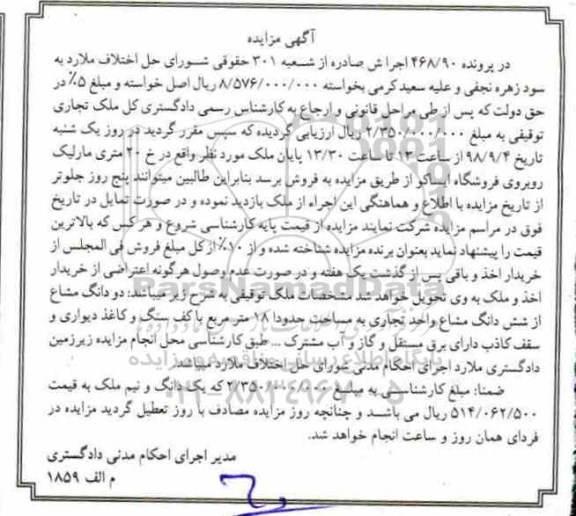 آگهی مزایده
در پرونده ۴۶۸/۹۰ اجرا ش صادره از شعبه ۳۰۱ حقوقی شورای حل اختلاف ملارد به
سود زهره نجفی و علیه سعید کرمی بخواسته ۸/۵۷۶/۰۰۰/۰۰۰ ریال اصل خواسته و مبلغ ۵٪ در
حق دولت که پس از طی مراحل قانونی و ارجاع به کارشناس رسمی دادگستری کل ملک تجاری
توقیفی به مبلغ ۲/۳۵۰/۰۰۰/۰۰۰ ریال ارزیابی گردیده که سپس مقرر گردید در روز یک شنبه
تاریخ ۹۸/۹/۴ از ساعت ۱۳ تا ساعت ۱۳/۳۰ پایان ملک مورد نظر واقع در خ ۲۰ متری مارلیک
روبروی فروشگاه ایساکو از طریق مزایده به فروش برسد بنابراین طالبین میتوانند پنج روز جلوتر
از تاریخ مزایده با اطلاع و هماهنگی این اجراء از ملک بازدید نموده و در صورت تمایل در تاریخ
فوق در مراسم مزایده شرکت نمایند مزایده از قیمت پایه کارشناسی شروع و هر کس که بالاترین
قیمت را پیشنهاد نماید بعنوان برنده مزایده شناخته شده و از ۱۰٪ از کل مبلغ فروش فی المجلس از
خریدار اخذ و باقی پس از گذشت یک هفته و در صورت عدم وصول هرگونه اعتراضی از خریدار
اخذ و ملک به وی تحویل خواهد شد مشخصات ملک توقیفی به شرح زیر میباشد: دو دانگ مشاع
از شش دانگ مشاع واحد تجاری به مساحت حدودا ۱۸ متر مربع با کف سنگ و کاغذ دیواری و
سقف کاذب دارای برق مستقل و گاز و آب مشترک ... طبق کارشناسی محل انجام مزایده زیرزمین
دادگستری ملارد اجرای احکام مدنی شورای حل اختلاف ملارد میباشد.
ضمنا: مبلغ کارشناسی به مبلغ ۲/۳۵۰/۰۰۰/۰۰۰ که یک دانگ و نیم ملک به قیمت
۵۱۴/۰۶۲/۵۰۰ ریال می باشد و چنانچه روز مزایده مصادف با روز تعطیل گردید مزایده در
فردای همان روز و ساعت انجام خواهد شد.
مدیر اجرای احکام مدنی دادگستری
م الف ۱۸۵۹
ParsNamadData